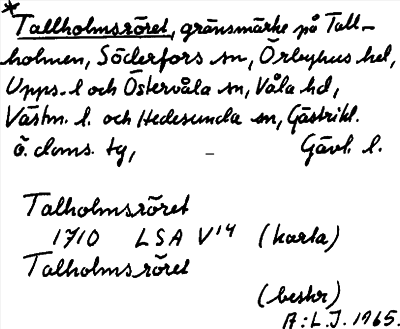 *
Tallholmsröret, gränsmärke på Tall-
holmen, Söderfors sn, Örbyhus hd,
Upps. l och Östervåla sn, Våla hd,
Västm. l. och Hedesunda sn, Gästrikl.
ö. doms. tg, – Gävl. l.
Talholmsröret
1710 LSA V14 (karta)
Talholmsröret
(beskr)
A:L.J. 1965.